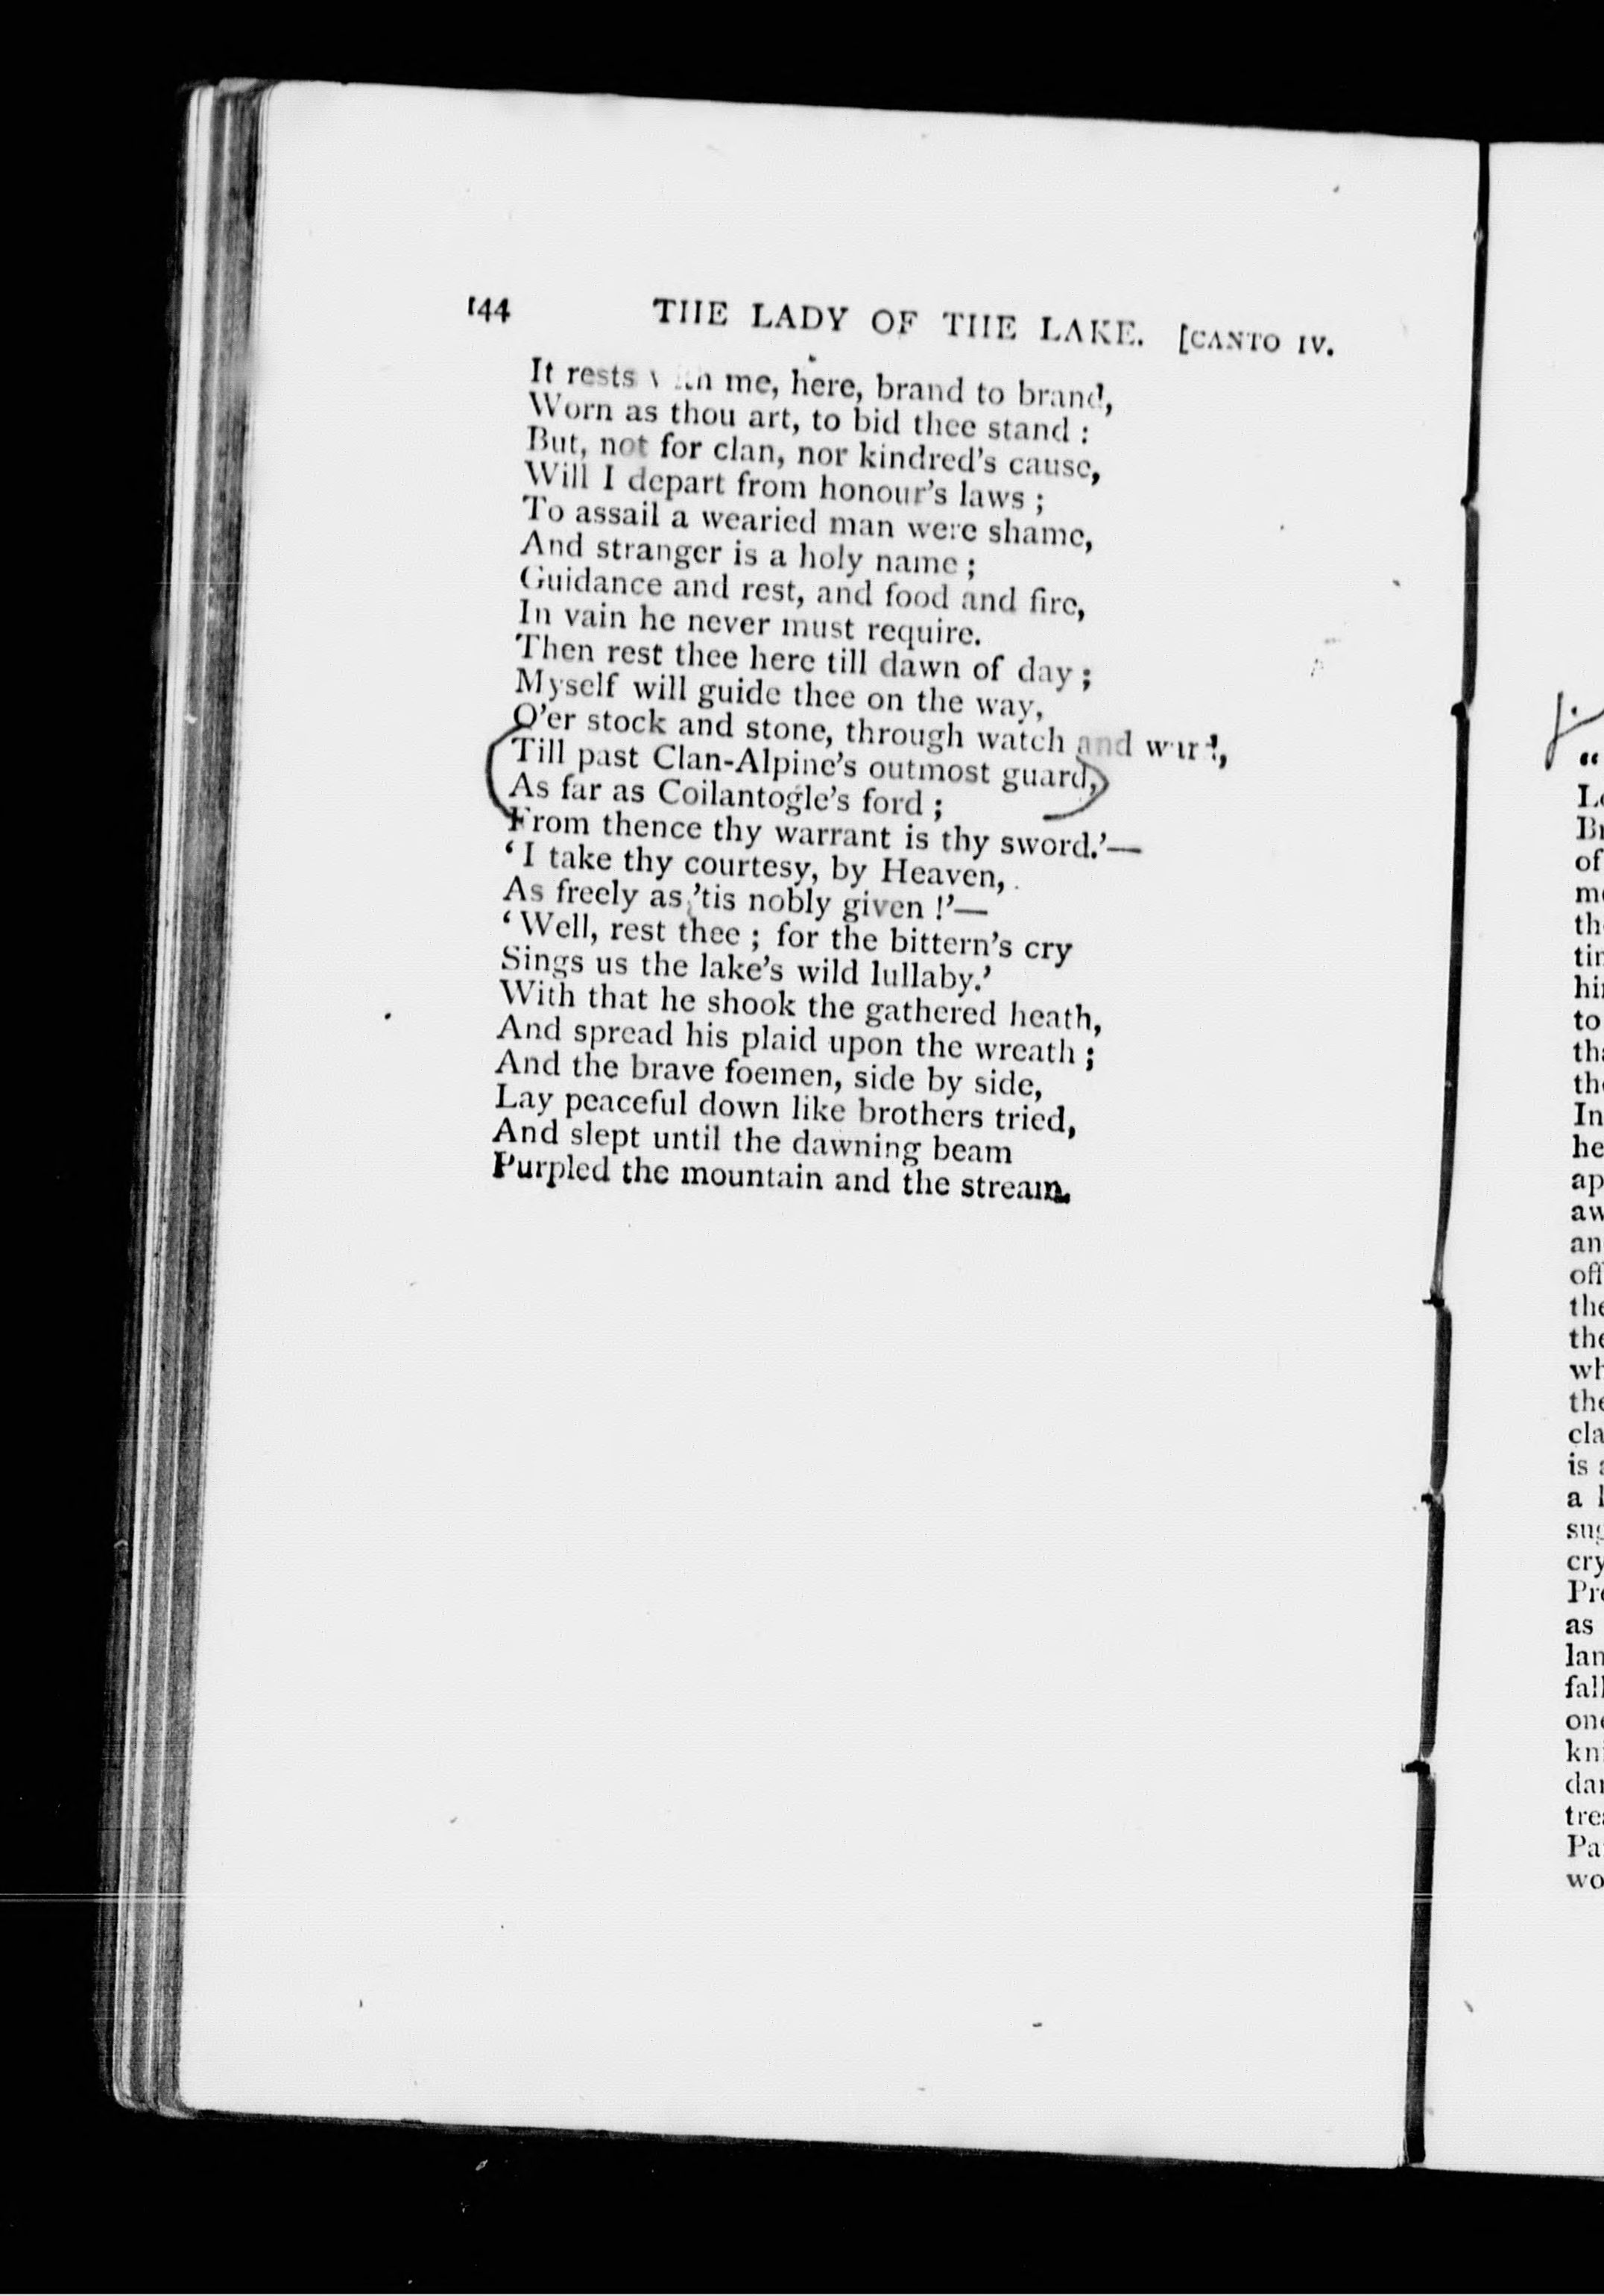 144 THE LADY OF THE LAKE. [CANTO IV.
It rests with me, here, brand to brand,
Worn as thou art, to bid thee stand :
But, not for clan, nor kindred's cause,
Will I depart from honour's laws ;
To assail a wearied man were shame,
And stranger is a holy name ;
Guidance and rest, and food and fire,
In vain he never must require.
Then rest thee here till dawn of day ;
Myself will guide thee on the way,
O'er stock and stone, through watch and ward,
Till past Clan-Alpine's outmost guard,
As far as Coilantogle's ford ;
From thence thy warrant is thy sword.'—
'I take thy courtesy, by Heaven,
As freely as 'tis nobly given !'—
'Well, rest thee ; for the bittern's cry
Sings us the lake's wild lullaby.'
With that he shook the gathered heath,
And spread his plaid upon the wreath ;
And the brave foemen, side by side,
Lay peaceful down like brothers tried,
And slept until the dawning beam
Purpled the mountain and the stream.
of
to
In
he
as